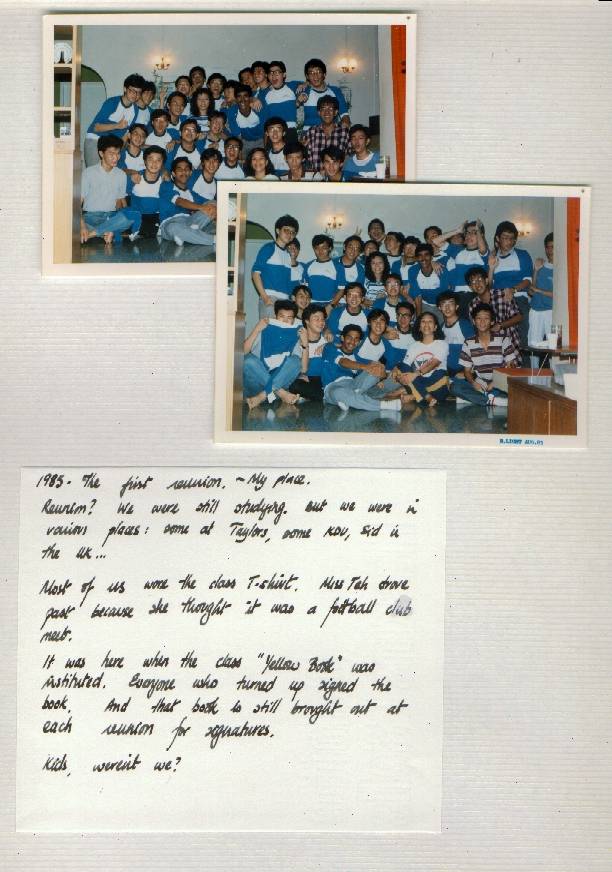 R.LIGHT AUG.85
1985 - The first reunion. - My place.
Reunion? We were still studying. But we were in
various places: some at Taylors, some KDU, Sid in
the UK...
Most of us wore the class T-shirt. Miss Teh drove
past because she thought it was a football club
meet.
It was here when the class "Yellow Book" was
instituted. Everyone who turned up signed the
book. And that book is still brought out at
each reunion for signatures.
Kids, weren't we?